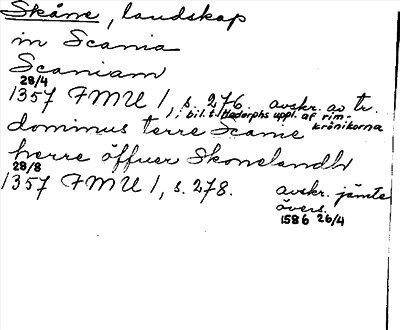 Skåne, landskap
in Scania
Scaniam
28/4
1357 FMU 1, s. 276. avskr. av tr.
i bil. t. Hadorphs uppl. af rim-
krönikorna
dominus terre Scanie
herre öffuer Skonelandh
28/8
1357 FMU 1, s. 278. avskr. jämte
övers.
1586 26/4